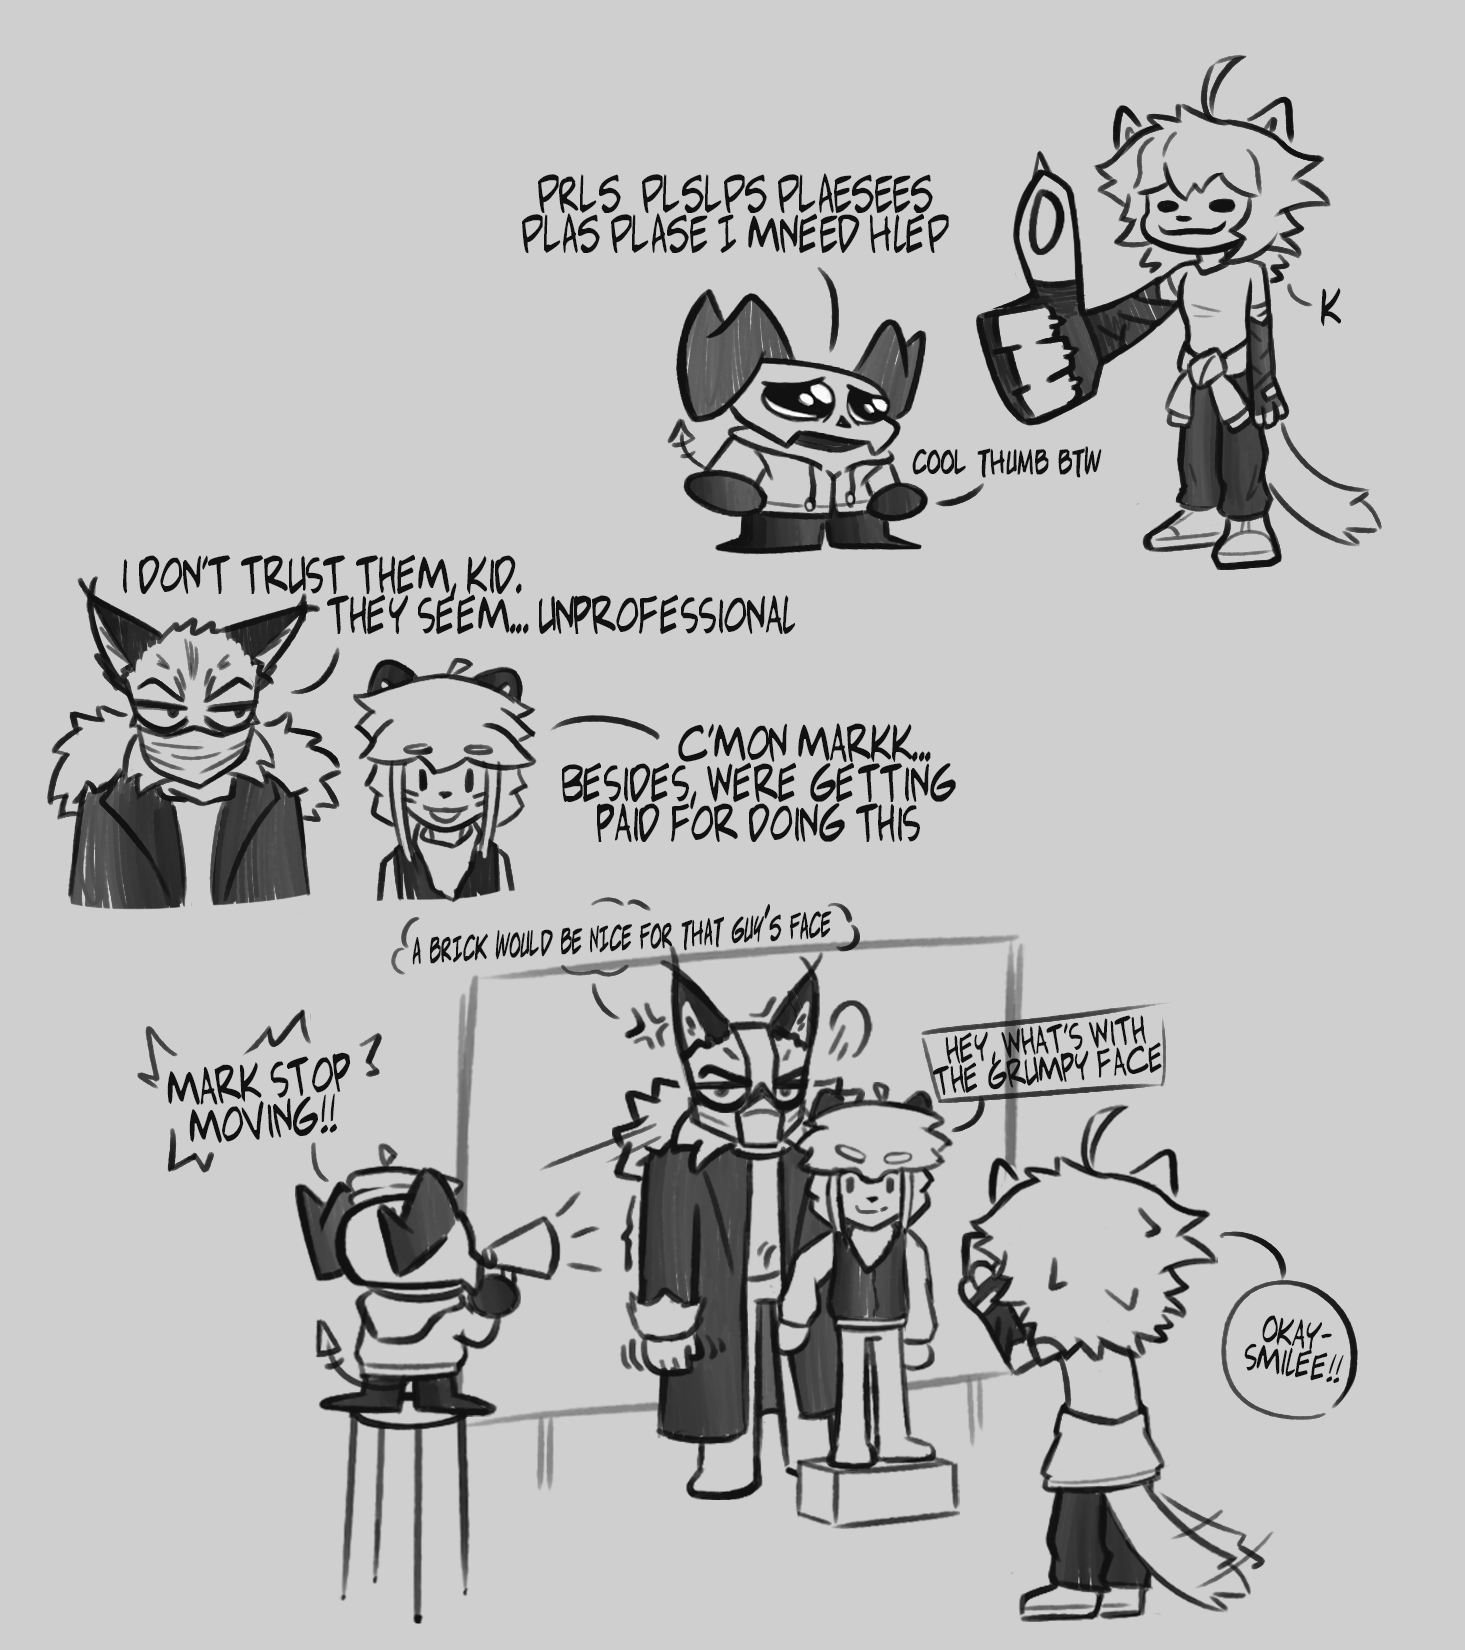 PRLS PLSLPS PLAESEES
PLAS PLASE I MNEED HLEP
K
COOL THUMB BTW
I DON'T TRUST THEM, KID.
THEY SEEM... UNPROFESSIONAL
C'MON MARKK...
BESIDES, WERE GETTING
PAID FOR DOING THIS
A BRICK WOULD BE NICE FOR THAT GUY'S FACE
MARK STOP
MOVING!!
HEY, WHAT'S WITH
THE GRUMPY FACE
OKAY-
SMILEE!!